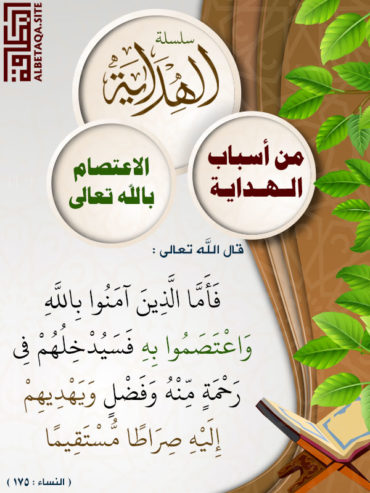 البطاقة
ALBETAQA.SITE
سلسلة
الهداية
من أسباب
الهداية
الاعتصام
بالله تعالى
قال الله تعالى :
فَأَمَّا الَّذِينَ آمَنُوا بِاللَّهِ
وَاعْتَصَمُوا بِهِ فَسَيُدْخِلُهُمْ فِي
رَحْمَةٍ مِّنْهُ وَفَضْلٍ وَيَهْدِيهِمْ
إِلَيْهِ صِرَاطًا مُّسْتَقِيمًا
( النساء : ١٧٥ )